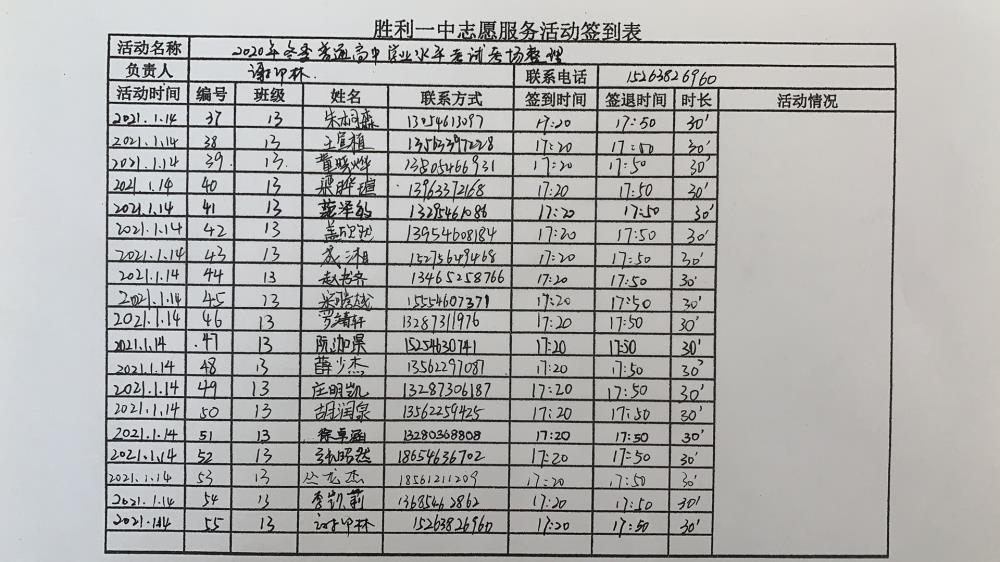 胜利一中志愿服务活动签到表
活动名称 2020年冬季普通高中学业水平考试考场整理
负责人 联系电话 15263826960
活动时间 编号 班级 姓名 联系方式 签到时间 签退时间 时长 活动情况
2021.1.14 37 13 13054613097 17:20 17:50 30'
2021.1.14 38 13 王宣植 13563397228 17:20 17:50 30'
2021.1.14 39 13 董晓烨 13805466931 17:20 17:50 30'
2021.1.14 40 13 梁晔瑄 13963372168 17:20 17:50 30'
2021.1.14 41 13 13295461086 17:20 17:50 30'
2021.1.14 42 13 盖欣然 13954608184 17:20 17:50 30'
2021.1.14 43 13 15275649468 17:20 17:50 30'
2021.1.14 44 13 赵书齐 13465258766 17:20 17:50 30'
2021.1.14 45 13 15554607371 17:20 17:50 30'
2021.1.14 46 13 罗靖轩 13287311976 17:20 17:50 30'
2021.1.14 .47 13 阮迦果 15254630741 17:20 17:50 30'
2021.1.14 48 13 薛少杰 13562297087 17:20 17:50 30'
2021.1.14 49 13 庄明凯 13287306187 17:20 17:50 30'
2021.1.14 50 13 胡润泉 13562259425 17:20 17:50 30'
2021.1.14 51 13 徐卓涵 13280368808 17:20 17:50 30'
2021.1.14 52 13 18654636702 17:20 17:50 30'
2021.1.14 53 13 丛龙杰 18561211209 17:20 17:50 30'
2021.1.14 54 13 李凯莉 13685462862 17:20 17:50 30'
2021.1.14 55 13 15263826960 17:20 17:50 30'